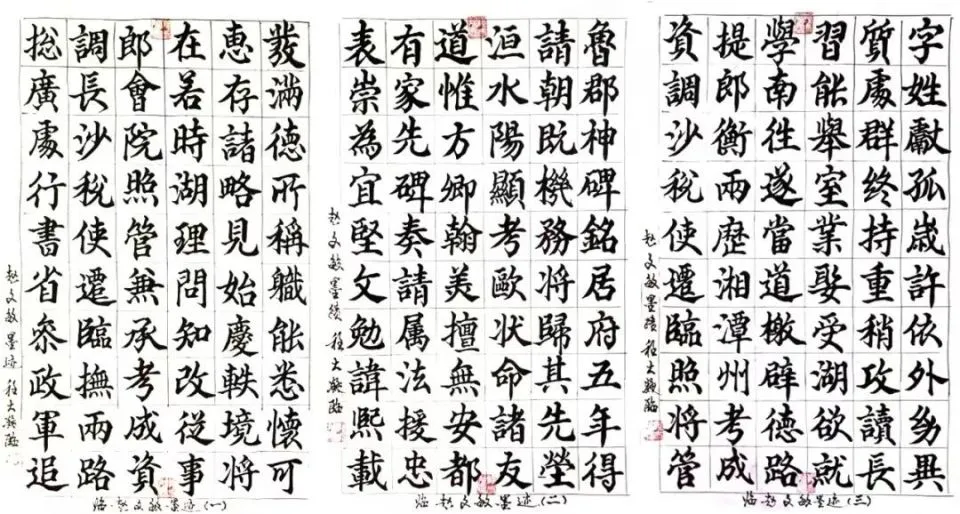 發滿德所稱職能悉懷可
惠存諸略見始慶軼境將
在若時湖理問知改從事
郎會院照管兼承考成資
調長沙稅使遷臨撫兩路
総廣處行書省叅政軍追
赵文敏墨迹 程大臨
临赵文敏墨迹(一)
魯郡神碑銘居府五年得
請朝既機務将歸其先塋
洹水陽顯考歐状命諸友
道惟方卿翰美擅無安都
有家先碑奏請属法援忠
表崇為宜堅文勉諱熙載
赵文敏墨蹟 程大臨
临赵文敏墨迹(二)
字姓獻孤歲許依外幼異
質處群終持重稍攻讀長
習能舉室業娶受湖欲就
學南往遂當道檄辟德路
提郎衡兩歷湘潭州考成
資調沙稅使遷臨照將管
赵文敏墨蹟 程大臨
临赵文敏墨迹(三)